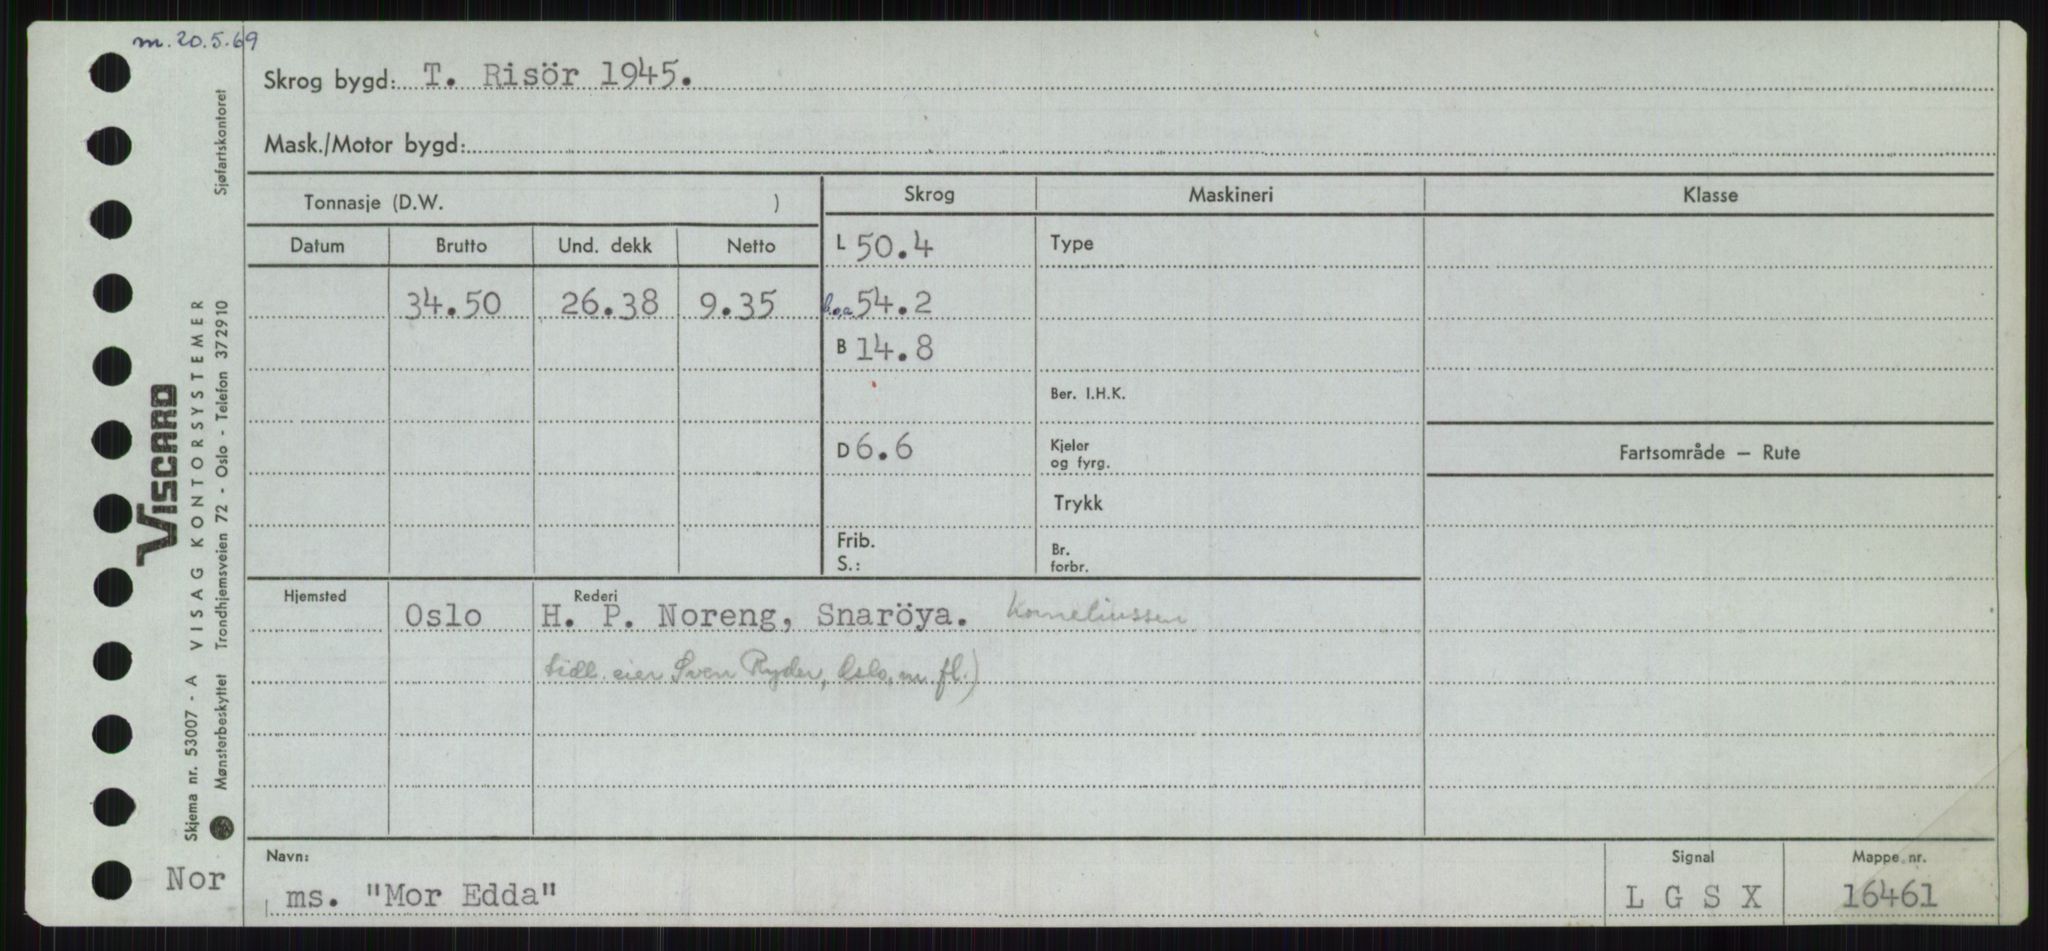 m. 20.5.69
Skrog bygd: T. Risör 1945.
Mask./Motor bygd:
Tonnasje (D.W. )
Skrog
Maskineri
Klasse
Datum
Brutto
Und. dekk
Netto
L 50.4
Type
34.50
26.38
9.35
l.o.a. 54.2
B 14.8
Ber. I.H.K.
D 6.6
Kjeler
og fyrg.
Fartsområde – Rute
Trykk
Frib.
S.:
Br.
forbr.
Hjemsted
Rederi
Oslo
H. P. Noreng, Snaröya. Korneliussen
tidl. eier Sven Ryder, Oslo, m. fl.)
Navn:
ms. "Mor Edda"
Signal
L G S X
Mappe nr.
16461
Nor
VISCARD
Skjema nr. 53007 - A VISAG KONTORSYSTEMER
Mønsterbeskyttet Trondhjemsveien 72 - Oslo - Telefon 372910 Sjøfartskontoret